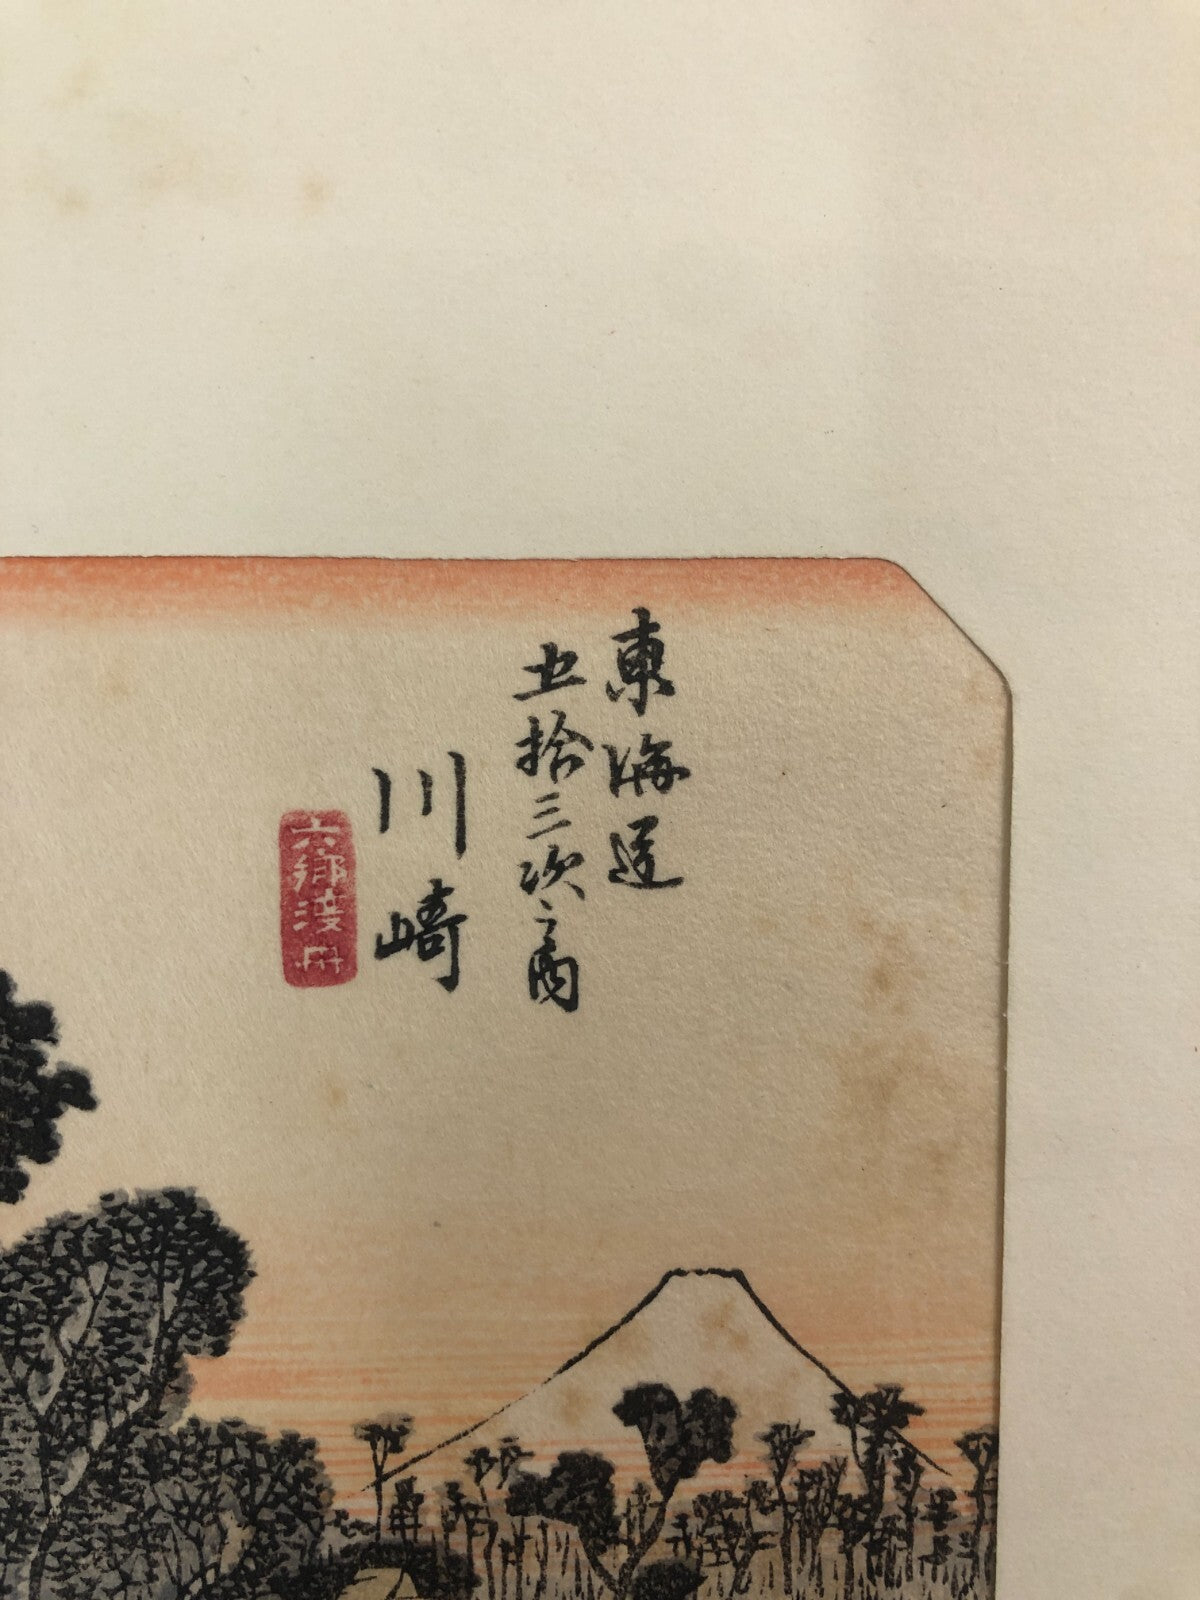 東海道
五拾三次之内
川崎
六郷渡舟